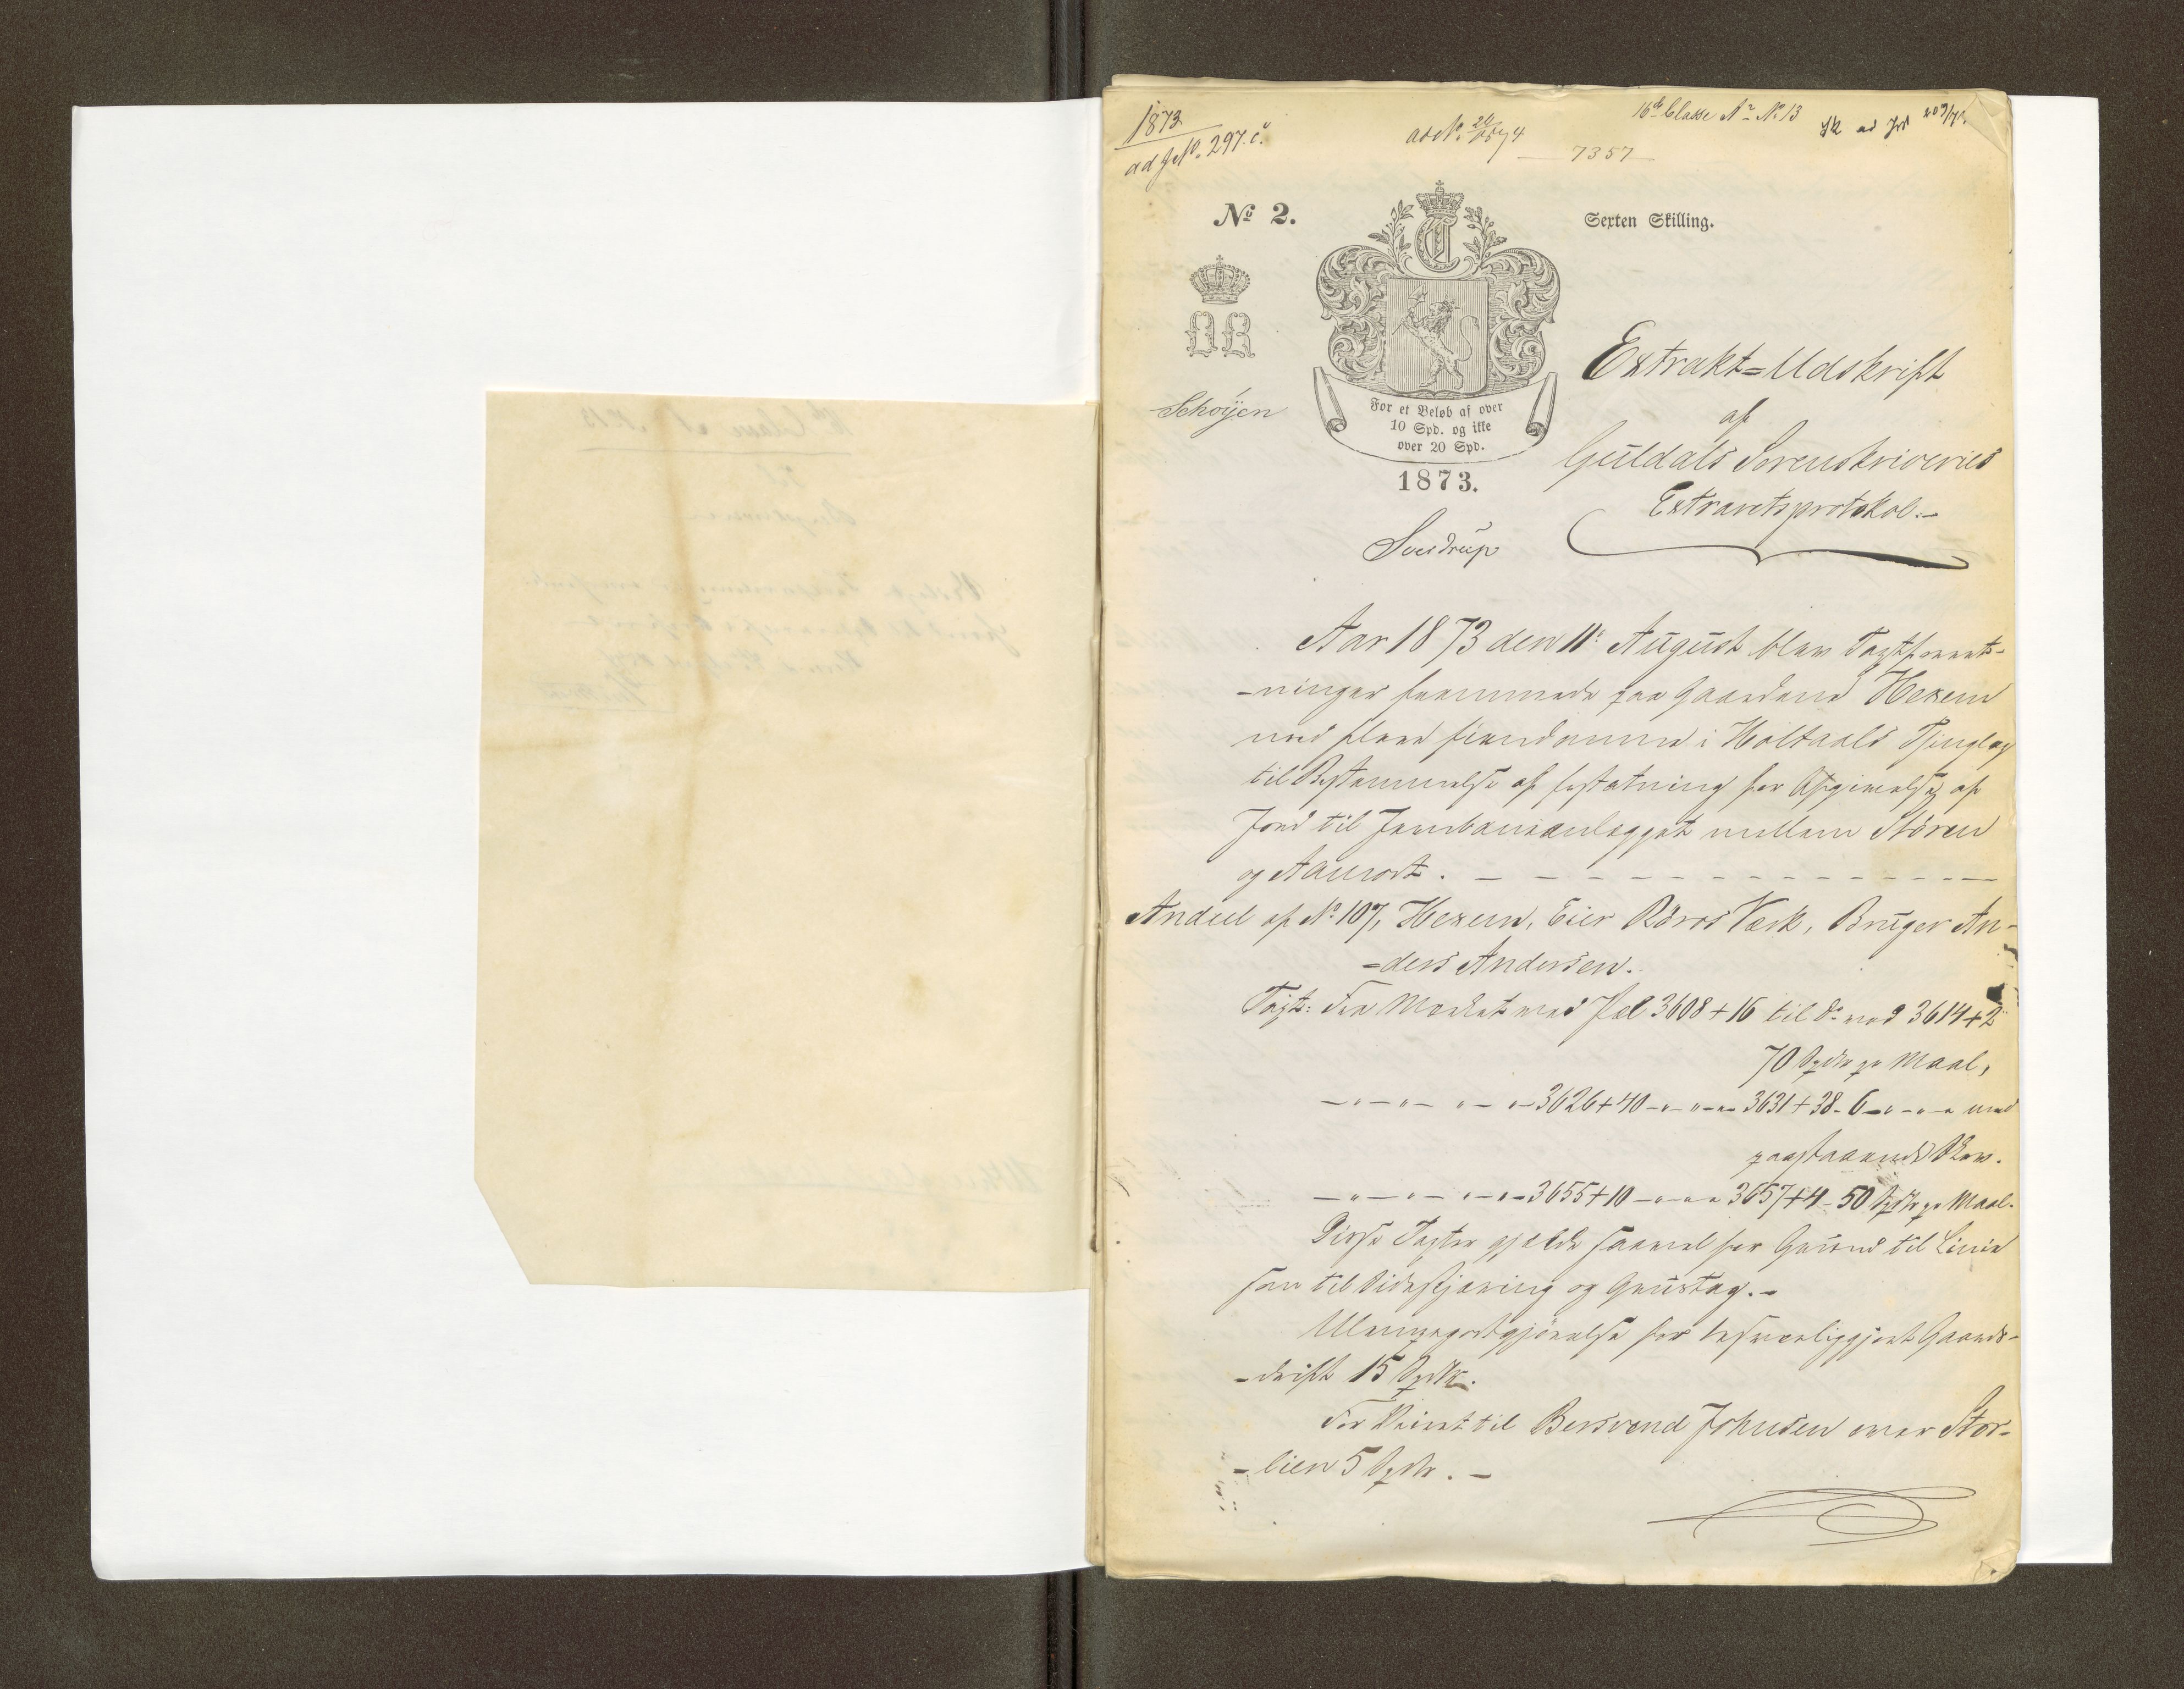 1873
ad J.No. 297.c.
7357
16de Classe No 13
No 2.
Sexten Skilling.
Schöyen
For et Beløb af over
10 Spd. og ikke
over 20 Spd.
1873.
Sverdrup
Extrakt=Udskrift
af
Guldals Sorenskriveries
Extraretsprotokol.-
Aar 1873 den 11te August blev Taxtforret-
-ninger fremmede paa Gaardene Hexem
med flere Eiendomme i Holtaals Thinglag
til Bestemmelse af Erstatning for Afgivelse af
Jord til Jernbaneanlægget mellem Stören
og Aamodt.
Andeel af No 107, Hexem, Eier Röros Værk, Bruger An-
=ders Andersen.
Taxt: Fra Mærket ved Pæl 3608+16 til do ved 3614+2
70 Spdlr pr Maal,
3626+40 3631+38 - 6 med
paastaaende Skov.
3655+10 3657+4 - 50 Spdlr pr Maal.
Disse Taxter gjælde saavel for Grund til Linie
som til Sideskjæring og Grustag.-
Ulempegodtgjörelse for besværliggjort Gaards-
-drift 15 Spdlr.
For Veiret til Bersvend Johnsen over Stor-
-lien 5 Spdlr.-